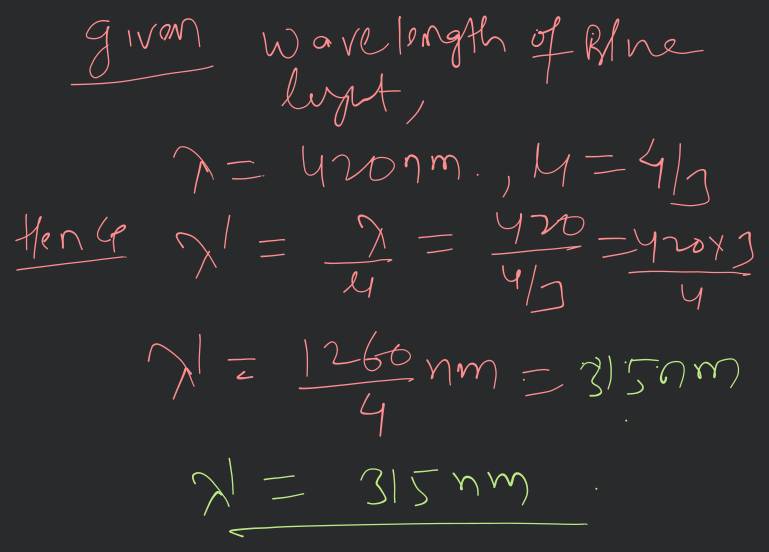 given wavelength of Blue
light,
λ = 420nm., μ = 4/3
Hence λ' = λ/μ = 420/4/3 = 420x3/4
λ' = 1260/4 nm = 315nm
λ' = 315nm.